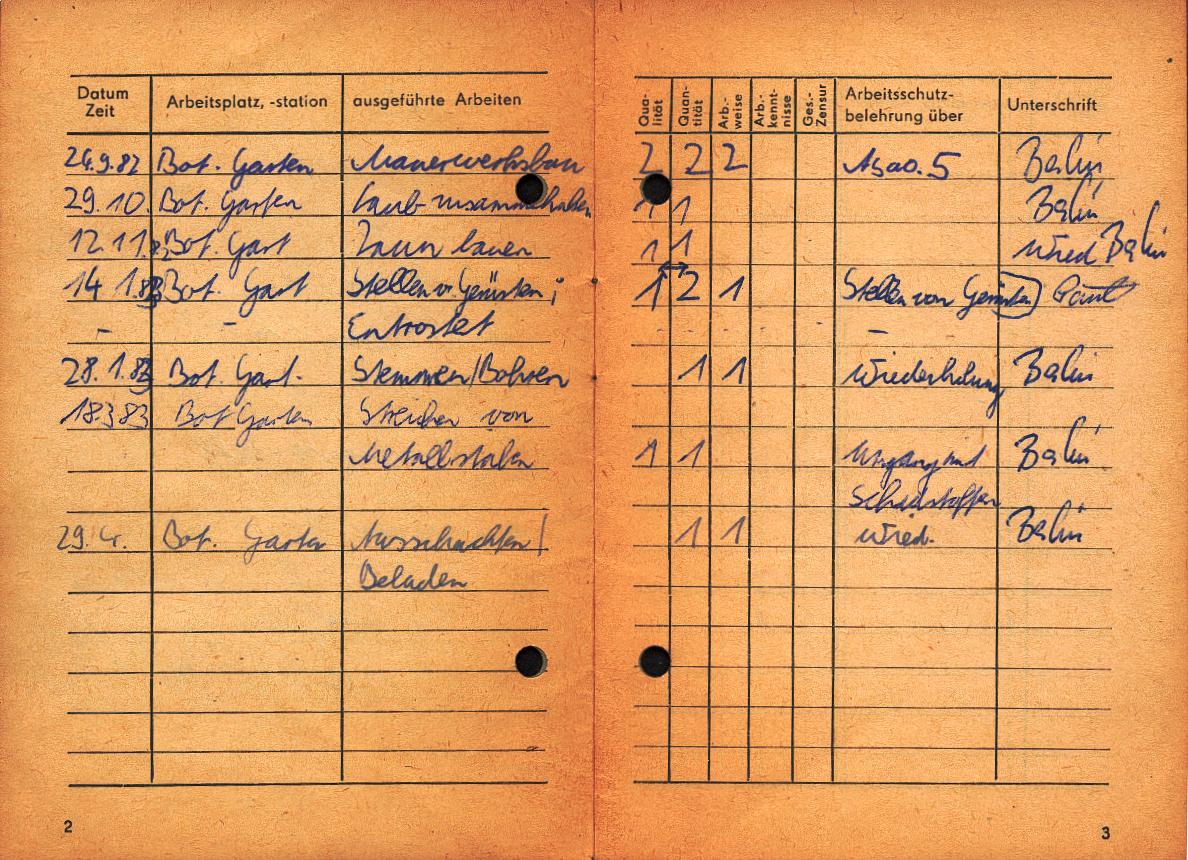 Datum Zeit Arbeitsplatz, -station ausgeführte Arbeiten Qua-lität Quan-tität Arb.-weise Arb.-kennt-nisse Ges.-Zensur Arbeitsschutz-belehrung über Unterschrift
24.9.82 Bot. Garten Mauerwerksbau 2 2 2 Asao. 5
29.10. Bot. Garten Laub 1 1
12.11. Bot. Gart Zaun bauen 1 1 Wied
14 1.83 Bot. Gart Stellen v. Gerüsten; 1 2 1 Stellen von Gerüsten
- - Entrostet -
28.1.83 Bot. Gart. Stemmen/Bohren 1 1 Wiederholung
18.3 83 Bot Garten Streichen von
Metallstäben 1 1 Umgang mit
Schadstoffen
29.4. Bot. Garten Ausschachten/ 1 1 Wied.
Beladen
2 3